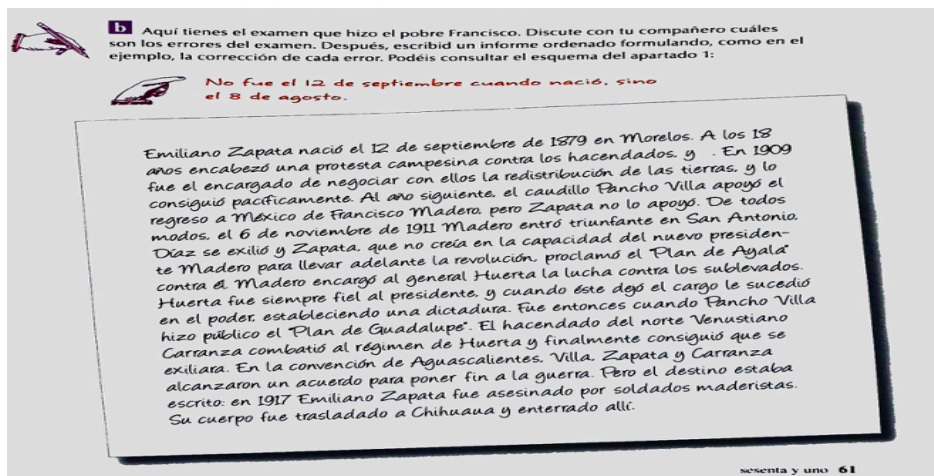 b Aquí tienes el examen que hizo el pobre Francisco. Discute con tu compañero cuáles
son los errores del examen. Después, escribid un informe ordenado formulando, como en el
ejemplo, la corrección de cada error. Podéis consultar el esquema del apartado 1:
No fue el 12 de septiembre cuando nació, sino
el 8 de agosto.
Emiliano Zapata nació el 12 de septiembre de 1879 en Morelos. A los 18
años encabezó una protesta campesina contra los hacendados, y . En 1909
fue el encargado de negociar con ellos la redistribución de las tierras, y lo
consiguió pacíficamente. Al año siguiente, el caudillo Pancho Villa apoyó el
regreso a México de Francisco Madero, pero Zapata no lo apoyó. De todos
modos, el 6 de noviembre de 1911 Madero entró triunfante en San Antonio,
Díaz se exilió y Zapata, que no creía en la capacidad del nuevo presiden-
te Madero para llevar adelante la revolución, proclamó el "Plan de Ayala"
contra él. Madero encargó al general Huerta la lucha contra los sublevados.
Huerta fue siempre fiel al presidente, y cuando éste dejó el cargo le sucedió
en el poder, estableciendo una dictadura. Fue entonces cuando Pancho Villa
hizo público el "Plan de Guadalupe". El hacendado del norte Venustiano
Carranza combatió al régimen de Huerta y finalmente consiguió que se
exiliara. En la convención de Aguascalientes, Villa, Zapata y Carranza
alcanzaron un acuerdo para poner fin a la guerra. Pero el destino estaba
escrito: en 1917 Emiliano Zapata fue asesinado por soldados maderistas.
Su cuerpo fue trasladado a Chihuaua y enterrado allí.
sesenta y uno 61